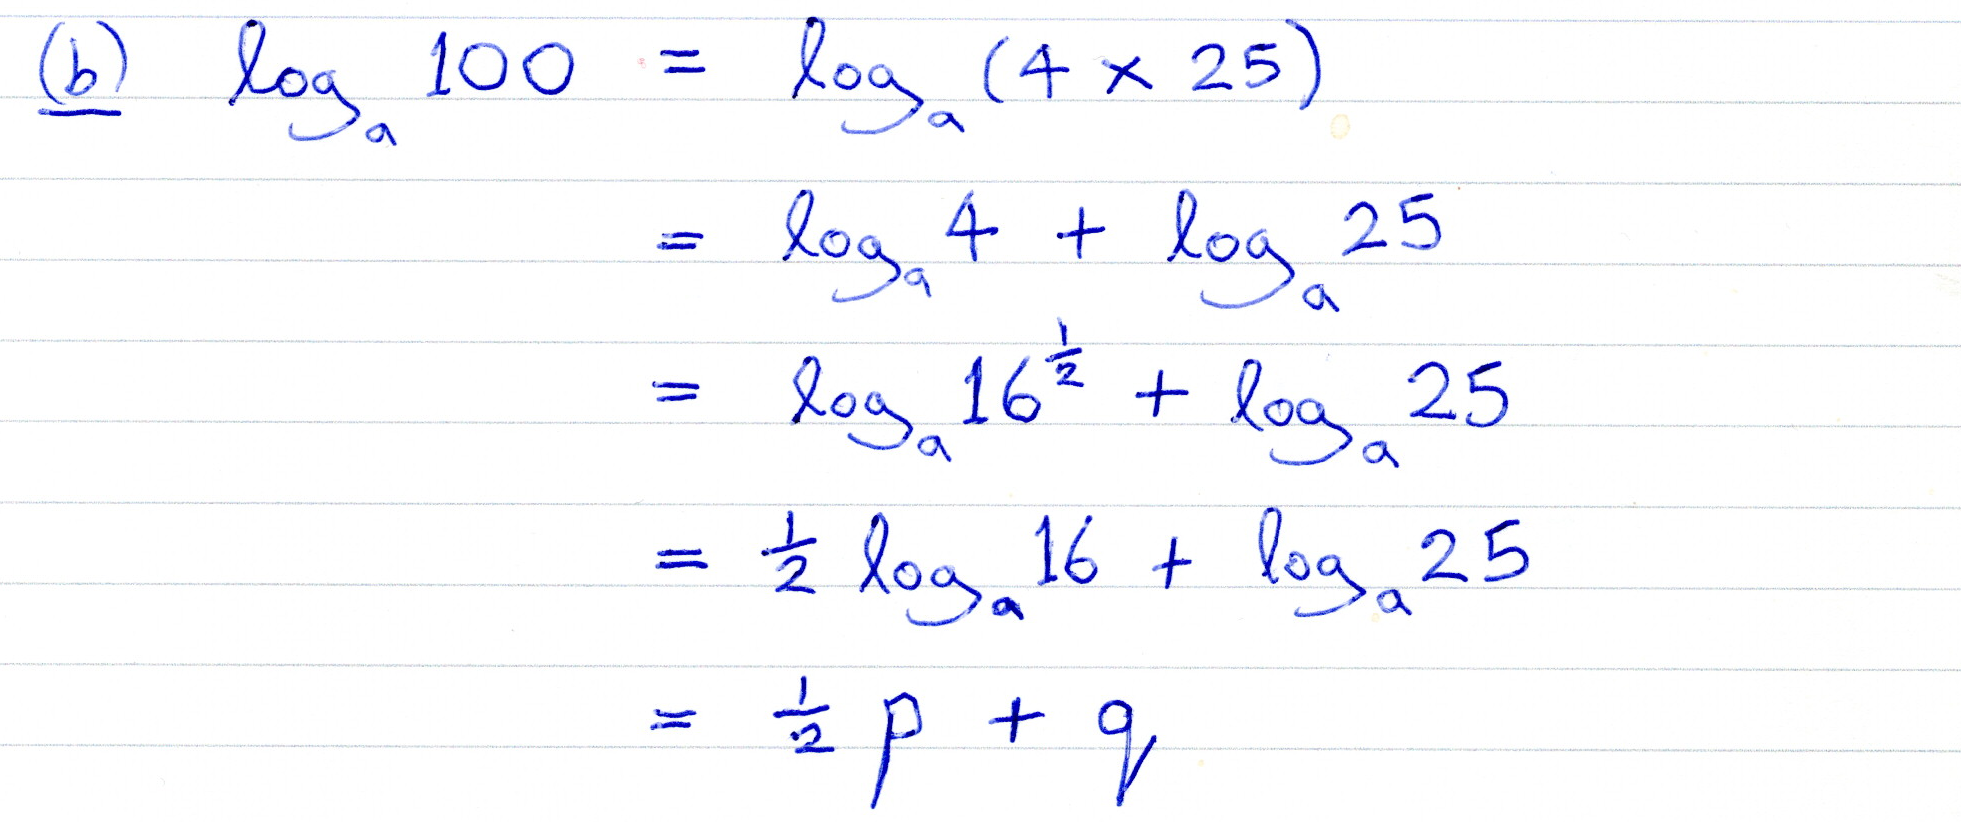 (b) logₐ 100 = logₐ (4 × 25)
= logₐ 4 + logₐ 25
= logₐ 16^½ + logₐ 25
= ½ logₐ 16 + logₐ 25
= ½ p + q